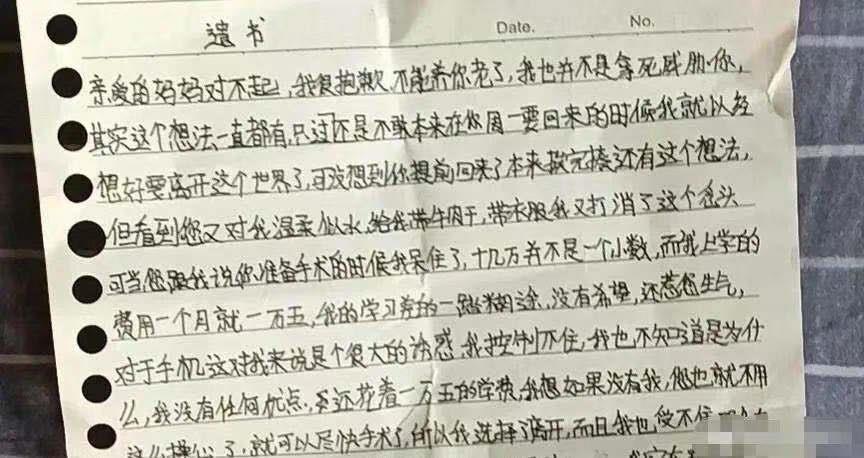 遗书 Date. No.
亲爱的妈妈对不起,我很抱歉不能养你老了,我也并不是拿死威胁你,
其实这个想法一直都有,只过还是不敢本来在你周一要回来的时候我就以经
想好要离开这个世界了,可没想到你提前回来了本来挨完揍还有这个想法,
但看到您又对我温柔似水,给我带牛肉干,带衣服我又打消了这个念头
可当您跟我说你准备手术的时候我呆住了,十几万并不是一个小数,而我上学的
费用一个月就一万五,我的学习弄的一踏糊涂,没有希望,还惹您生气,
对于手机这对我来说是个很大的诱惑,我控制不住,我也不知道是为什
么,我没有任何优点,还花着一万五的学费,我想如果没有我,您也就不用
这么操心了,就可以尽快手术了,所以我选择了离开,而且我也受不住